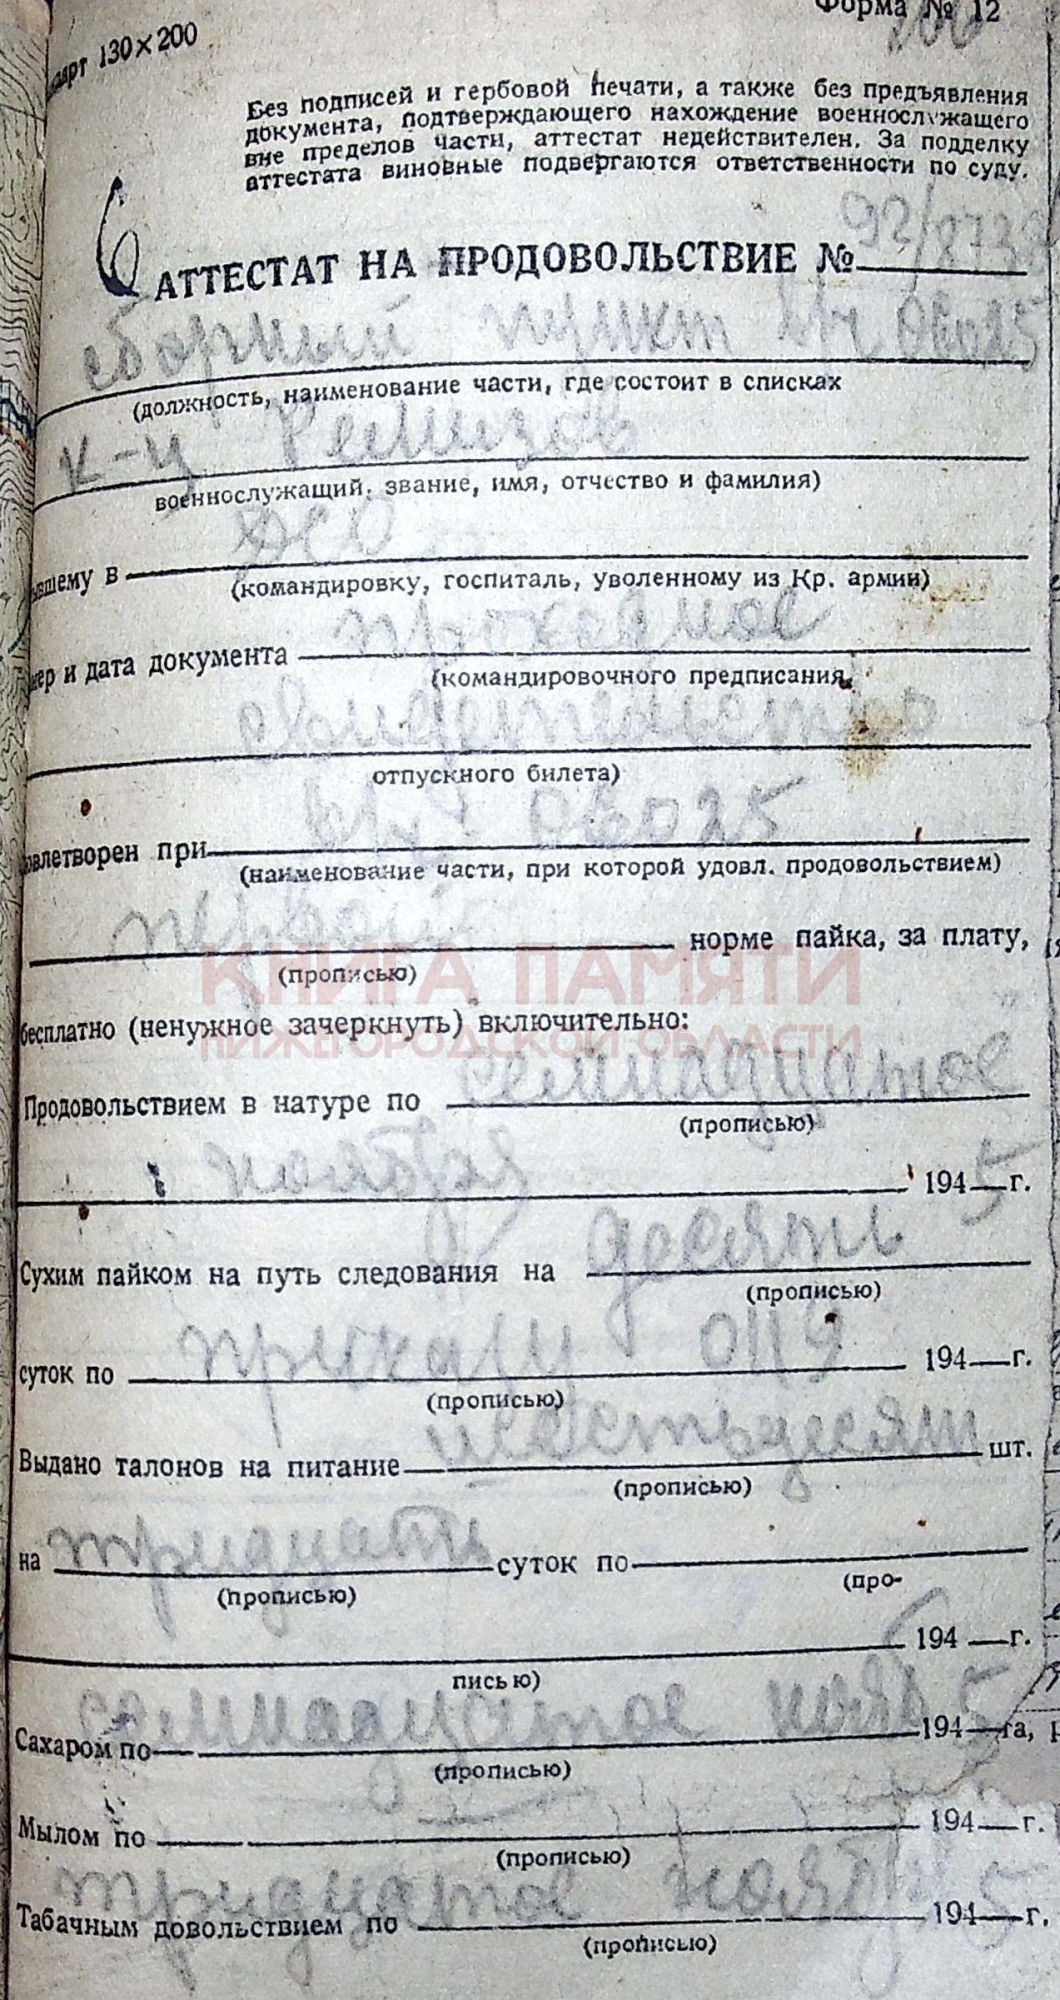 Форма № 12
130×200
Без подписей и гербовой печати, а также без предъявления
документа, подтверждающего нахождение военнослужащего
вне пределов части, аттестат недействителен. За подделку
аттестата виновные подвергаются ответственности по суду.
АТТЕСТАТ НА ПРОДОВОЛЬСТВИЕ № 92/873
сборный пункт в/ч 06025
(должность, наименование части, где состоит в списках
к-ц Ремизов
военнослужащий, звание, имя, отчество и фамилия)
вшему в
(командировку, госпиталь, уволенному из Кр. армии)
мер и дата документа проходное
(командировочного предписания,
свидетельство
отпускного билета)
овлетворен при в/ч 06025
(наименование части, при которой удовл. продовольствием)
первой норме пайка, за плату,
(прописью)
бесплатно (ненужное зачеркнуть) включительно:
КНИГА ПАМЯТИ
НИЖЕГОРОДСКОЙ ОБЛАСТИ
Продовольствием в натуре по семнадцатое
(прописью)
ноября 1945 г.
Сухим пайком на путь следования на десять
(прописью)
суток по приказу 0119 194 г.
(прописью)
Выдано талонов на питание шестьдесят шт.
(прописью)
на тридцать суток по
(прописью) (про-
194 г.
писью)
Сахаром по семнадцатое нояб 1945
(прописью)
Мылом по 194 г.
(прописью)
Табачным довольствием по тридцатое нояб 1945 г.
(прописью)